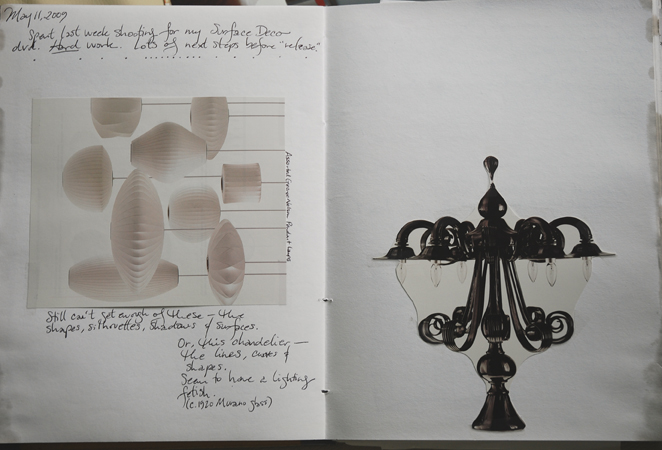 May 11, 2009
Spent last week shooting for my Surface Deco
dvd. Hard work. Lots of next steps before "release."
Assorted George Nelson Pendant Lamps
Still can't get enough of these – the
shapes, silhouettes, shadows & surfaces.
Or, this chandelier –
the lines, curves &
shapes.
Seem to have a lighting
fetish.
(c. 1920 Murano glass)